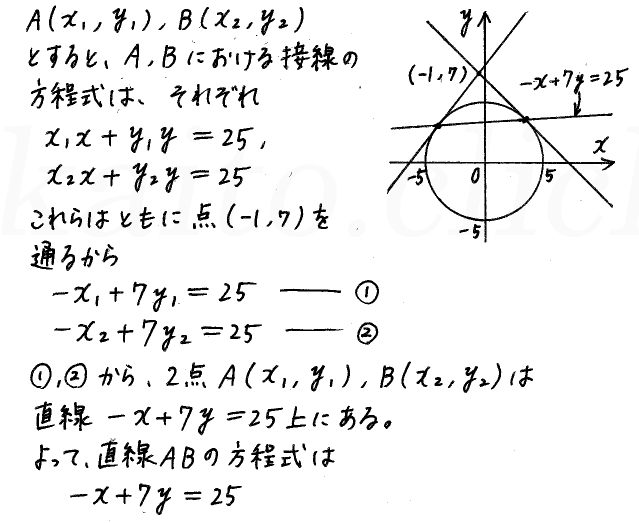 A(x₁, y₁), B(x₂, y₂)
とすると、A, B における接線の
方程式は、それぞれ
x₁x + y₁y = 25,
x₂x + y₂y = 25
これらはともに点(-1, 7)を
通るから
-x₁ + 7y₁ = 25 —— ①
-x₂ + 7y₂ = 25 —— ②
①,② から、2点 A(x₁, y₁), B(x₂, y₂)は
直線 -x + 7y = 25上にある。
よって、直線ABの方程式は
-x + 7y = 25
y
(-1, 7)
-x+7y=25
x
-5
0
5
-5